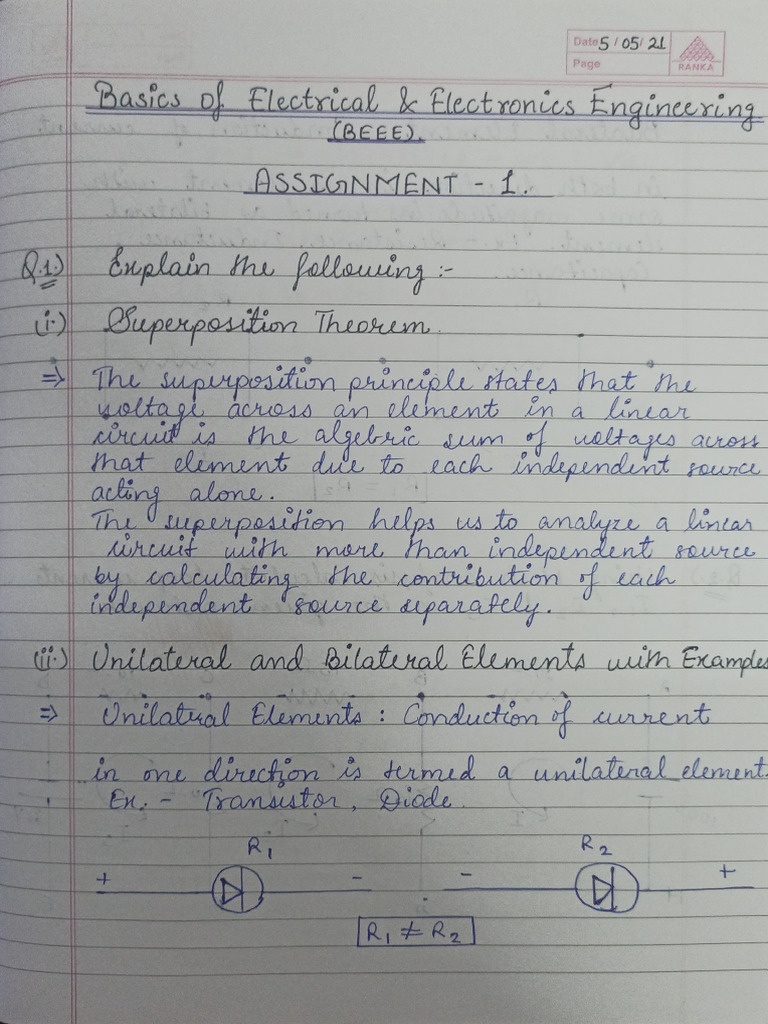 Date 5/05/21
Page
RANKA
Basics of Electrical & Electronics Engineering
(BEEE).
ASSIGNMENT - 1.
Q.1.) Explain the following :-
(i.) Superposition Theorem.
⇒ The superposition principle states that the
voltage across an element in a linear
circuit is the algebric sum of voltages across
that element due to each independent source
acting alone.
The superposition helps us to analyze a linear
circuit with more than independent source
by calculating the contribution of each
independent source separately.
(ii.) Unilateral and Bilateral Elements with Examples
⇒ Unilateral Elements : Conduction of current
in one direction is termed a unilateral element.
Ex. - Transistor, Diode.
R1 R2
+ - - +
R1 ≠ R2